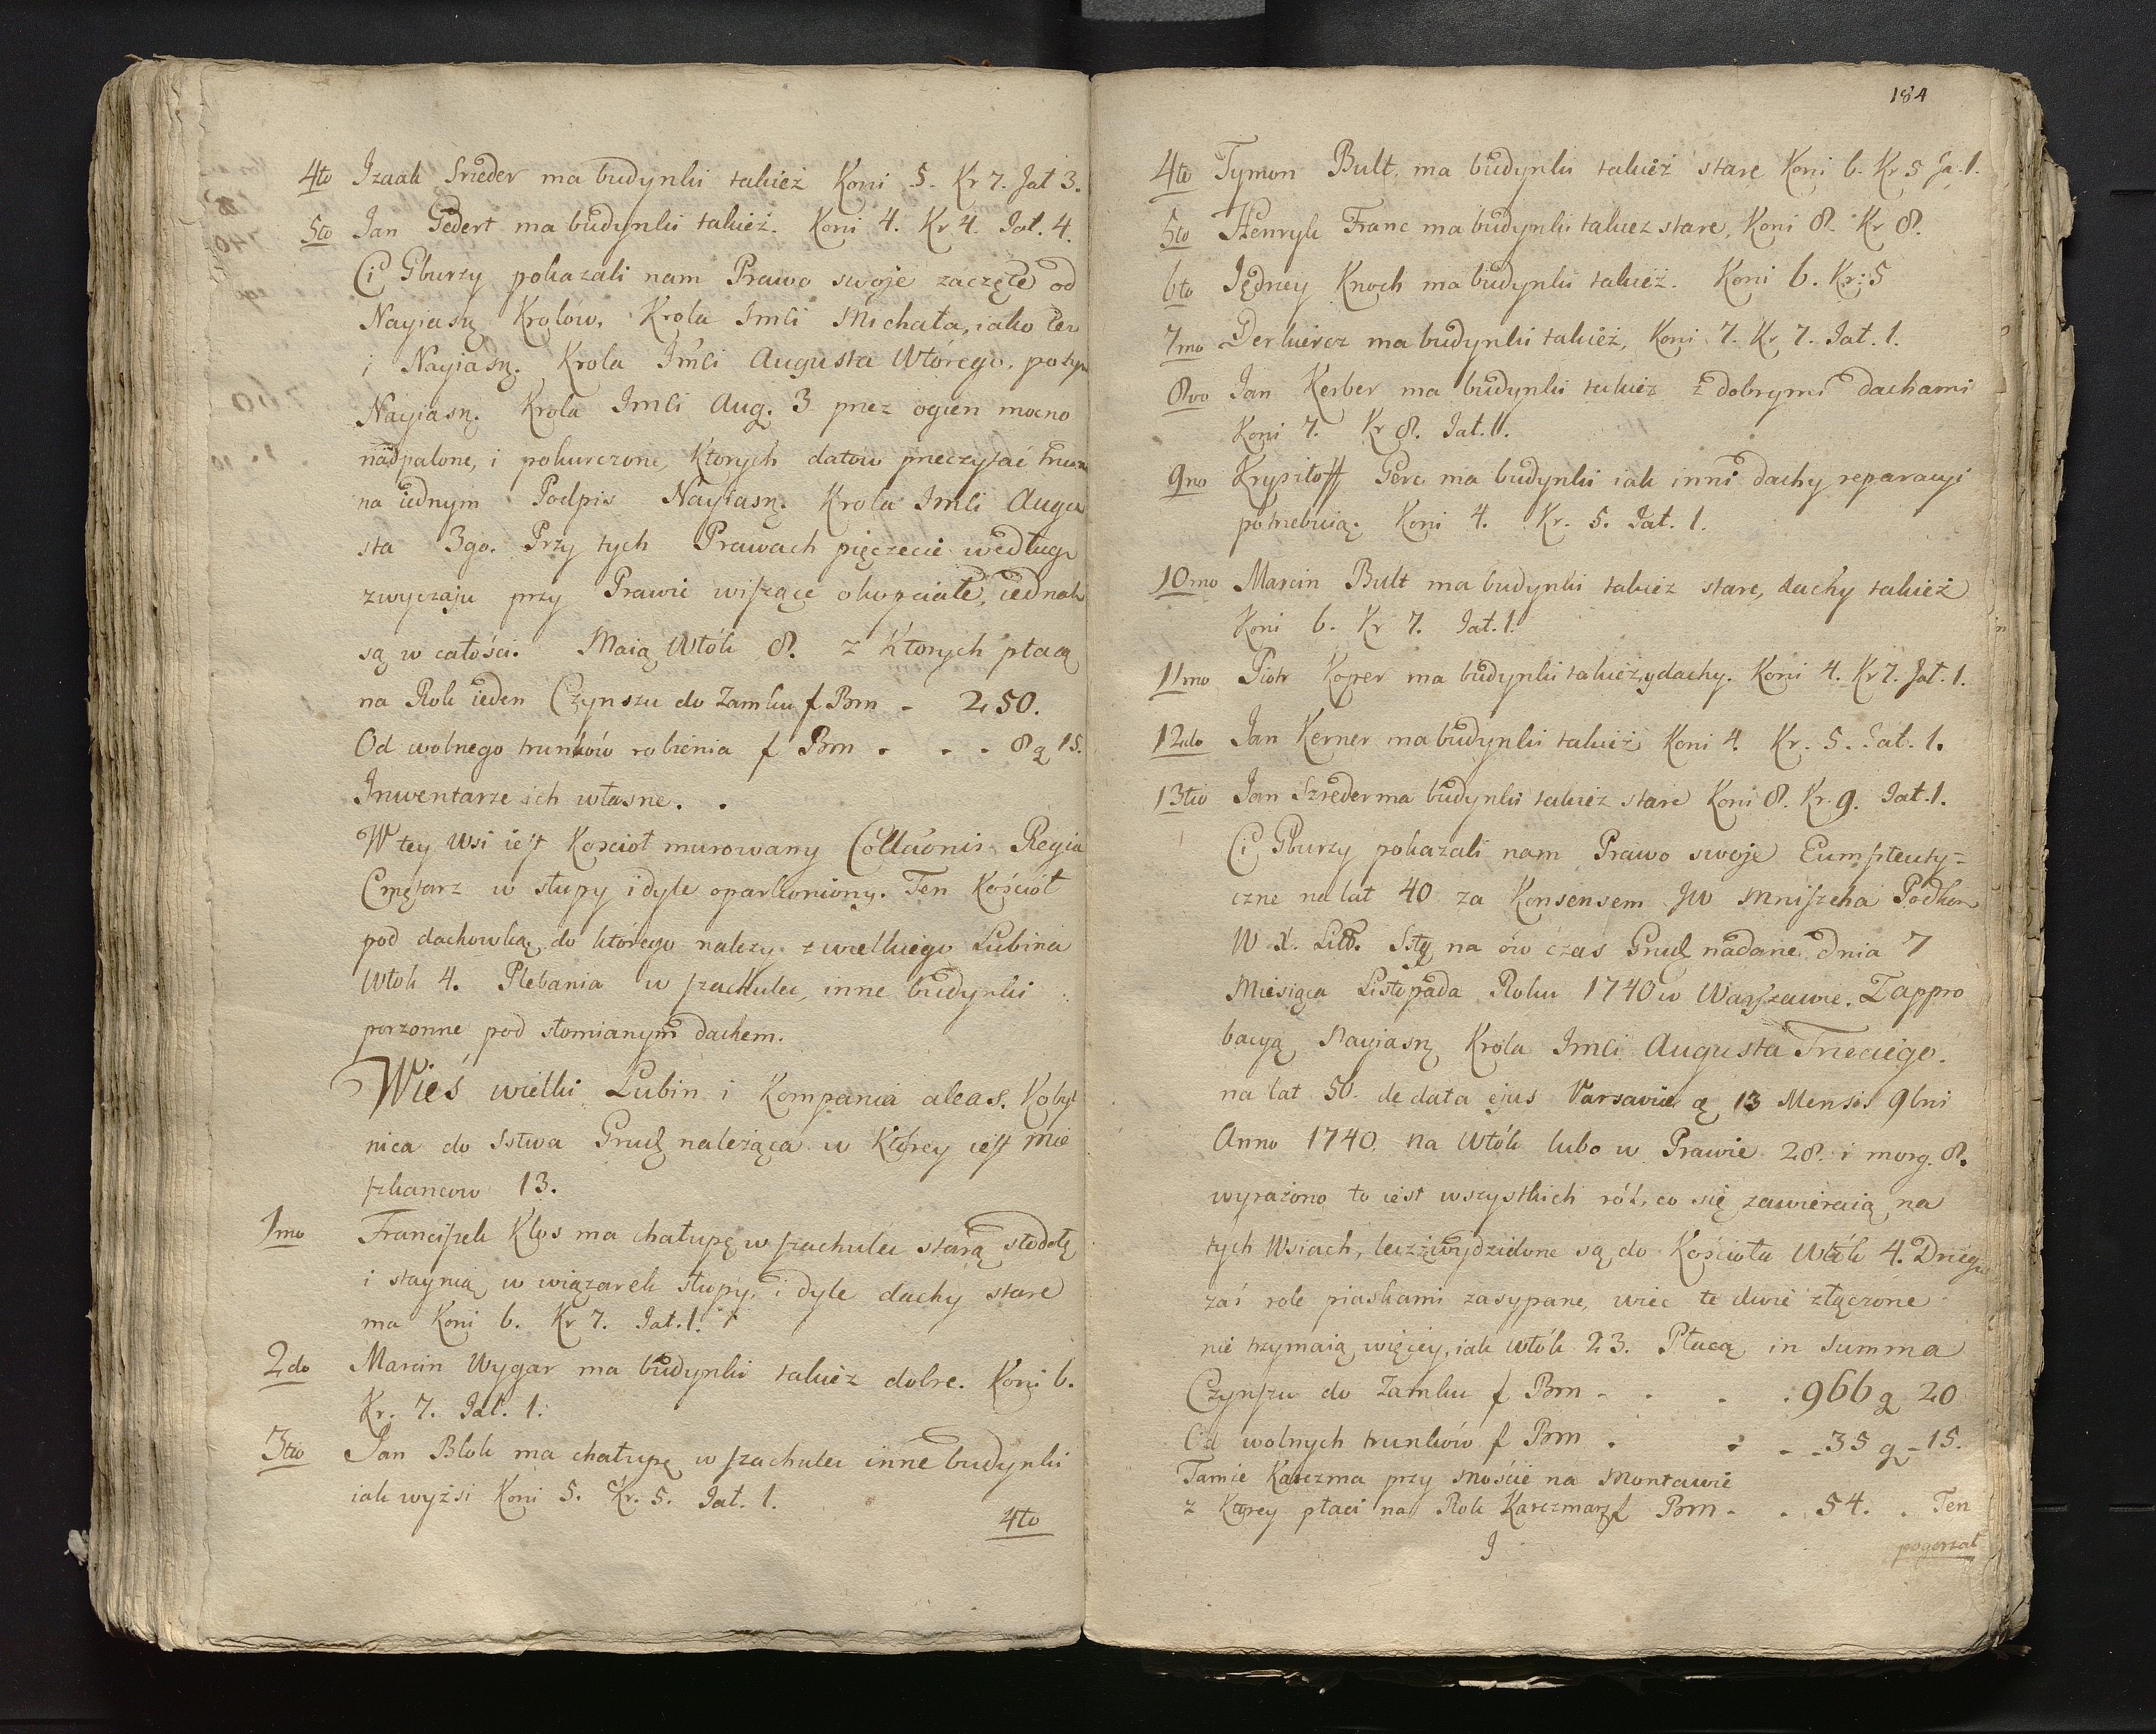 4to Izaak Srieder ma budynki takież Koni 5. Kr 7. Jał 3.
5to Jan Gedert ma budynki takież. Koni 4. Kr 4. Jał. 4.
Ci Gburzy pokazali nam Prawo swoje zaczęte od
Nayiasn̨ Krolów, Krola Jmci Michała, iako ter
i Nayiasn̨. Krola Jmci Augusta Wtórego, potym
Nayiasn̨. Krola Jmci Aug. 3 przez ogień mocno
nadpalone, i pokurczone, Ktorych datow przeczytać trudno
na iednym Podpis Nayiasn̨. Krola Jmci Augu
sta 3go. Przy tych Prawach pięczęcie według
zwyczaju przy Prawie wiszące okopciałe, iednak
są w całości. Maią Włók 8. z Ktorych płacą
na Rok ieden Czynszu do Zamku f Prn - 250.
Od wolnego trunków robienia f Prn - - - 8 g 15.
Inwentarze ich własne.
W tey Wsi iest Kościoł murowany Collationis Regia
Cmętarz w słupy i dyle oparkoniony. Ten Kościół
pod dachowką, do którego należy z wielkiego Lubina
Włok 4. Plebania w szachulec, inne budynki
porzonne pod słomianym dachem.
Wieś wielki Lubin i Kompania aleas. Kobyl
nica do Sstwa Grudz należąca w Ktorey iest Mie
szkancow 13.
1mo Franciszek Klos ma chałupę w szachulec starą stodołę
i staynią w wiązarek słupy, i dyle dachy stare
ma Koni 6. Kr 7. Jał. 1.
2do Marcin Wygar ma budynki takież dobre. Koni 6.
Kr. 7. Jał. 1.
3tio Jan Blok ma chałupę w szachulec inne budynki
iak wyżsi Koni 5. Kr. 5. Jał. 1.
4to
184
4to Tymon Bult, ma budynki takież stare Koni 6. Kr 5 Ja. 1.
5to Henryk Franc ma budynki takież stare, Koni 8. Kr 8.
6to Jędrzey Knoch ma budynki takież. Koni 6. Kr: 5
7mo Derkiercz ma budynki takież, Koni 7. Kr 7. Jał. 1.
8vo Jan Kerber ma budynki takież z dobrymi dachami
Koni 7. Kr 8. Jał. 11.
9no Krysztoff Gerc ma budynki iak inni dachy reparacyi
potrzebuią. Koni 4. Kr. 5. Jał. 1.
10mo Marcin Bult ma budynki takież stare, dachy takież
Koni 6. Kr 7. Jał. 1.
11mo Piotr Koper ma budynki takież, y dachy. Koni 4. Kr 7. Jał. 1.
12do Jan Kerner ma budynki takież Koni 4. Kr. 5. Jał. 1.
13tio Jan Szreder ma budynki takież stare Koni 8. Kr. 9. Jał. 1.
Ci Gburzy pokazali nam Prawo swoje Eumphteuty-
czne na lat 40 za Konsensem JW Mniszcha Podkom
W. X. Litt. Stę na ów czas Grudz nadane dnia 7
Miesiąca Listopada Roku 1740 w Warszawie. Z appro
bacyą Nayiasn̨ Krola Jmci Augusta Trzeciego.
na lat 50. de data ejus Varsaviæ d 13 Mensis 9bri
Anno 1740. na Włók lubo w Prawie 28. i morg. 8.
wyrażono to iest wszystkich ról, co się zawieraią na
tych Wsiach, lecz iż wydzielone są do Kościoła Włók 4. Drugie
zaś role piaskami zasypane, więc te dwie złączone
nie trzymaią więcey, iak Włók 23. Płacą in Summa
Czynszu do Zamku f Prn - - - 966 g 20
Od wolnych trunków f Prn - - - 35 g - 15.
Tamże Karczma przy Moście na Montawie
z Ktorey płaci na Rok Karczmarz f Prn - - 54. Ten
pogorzał